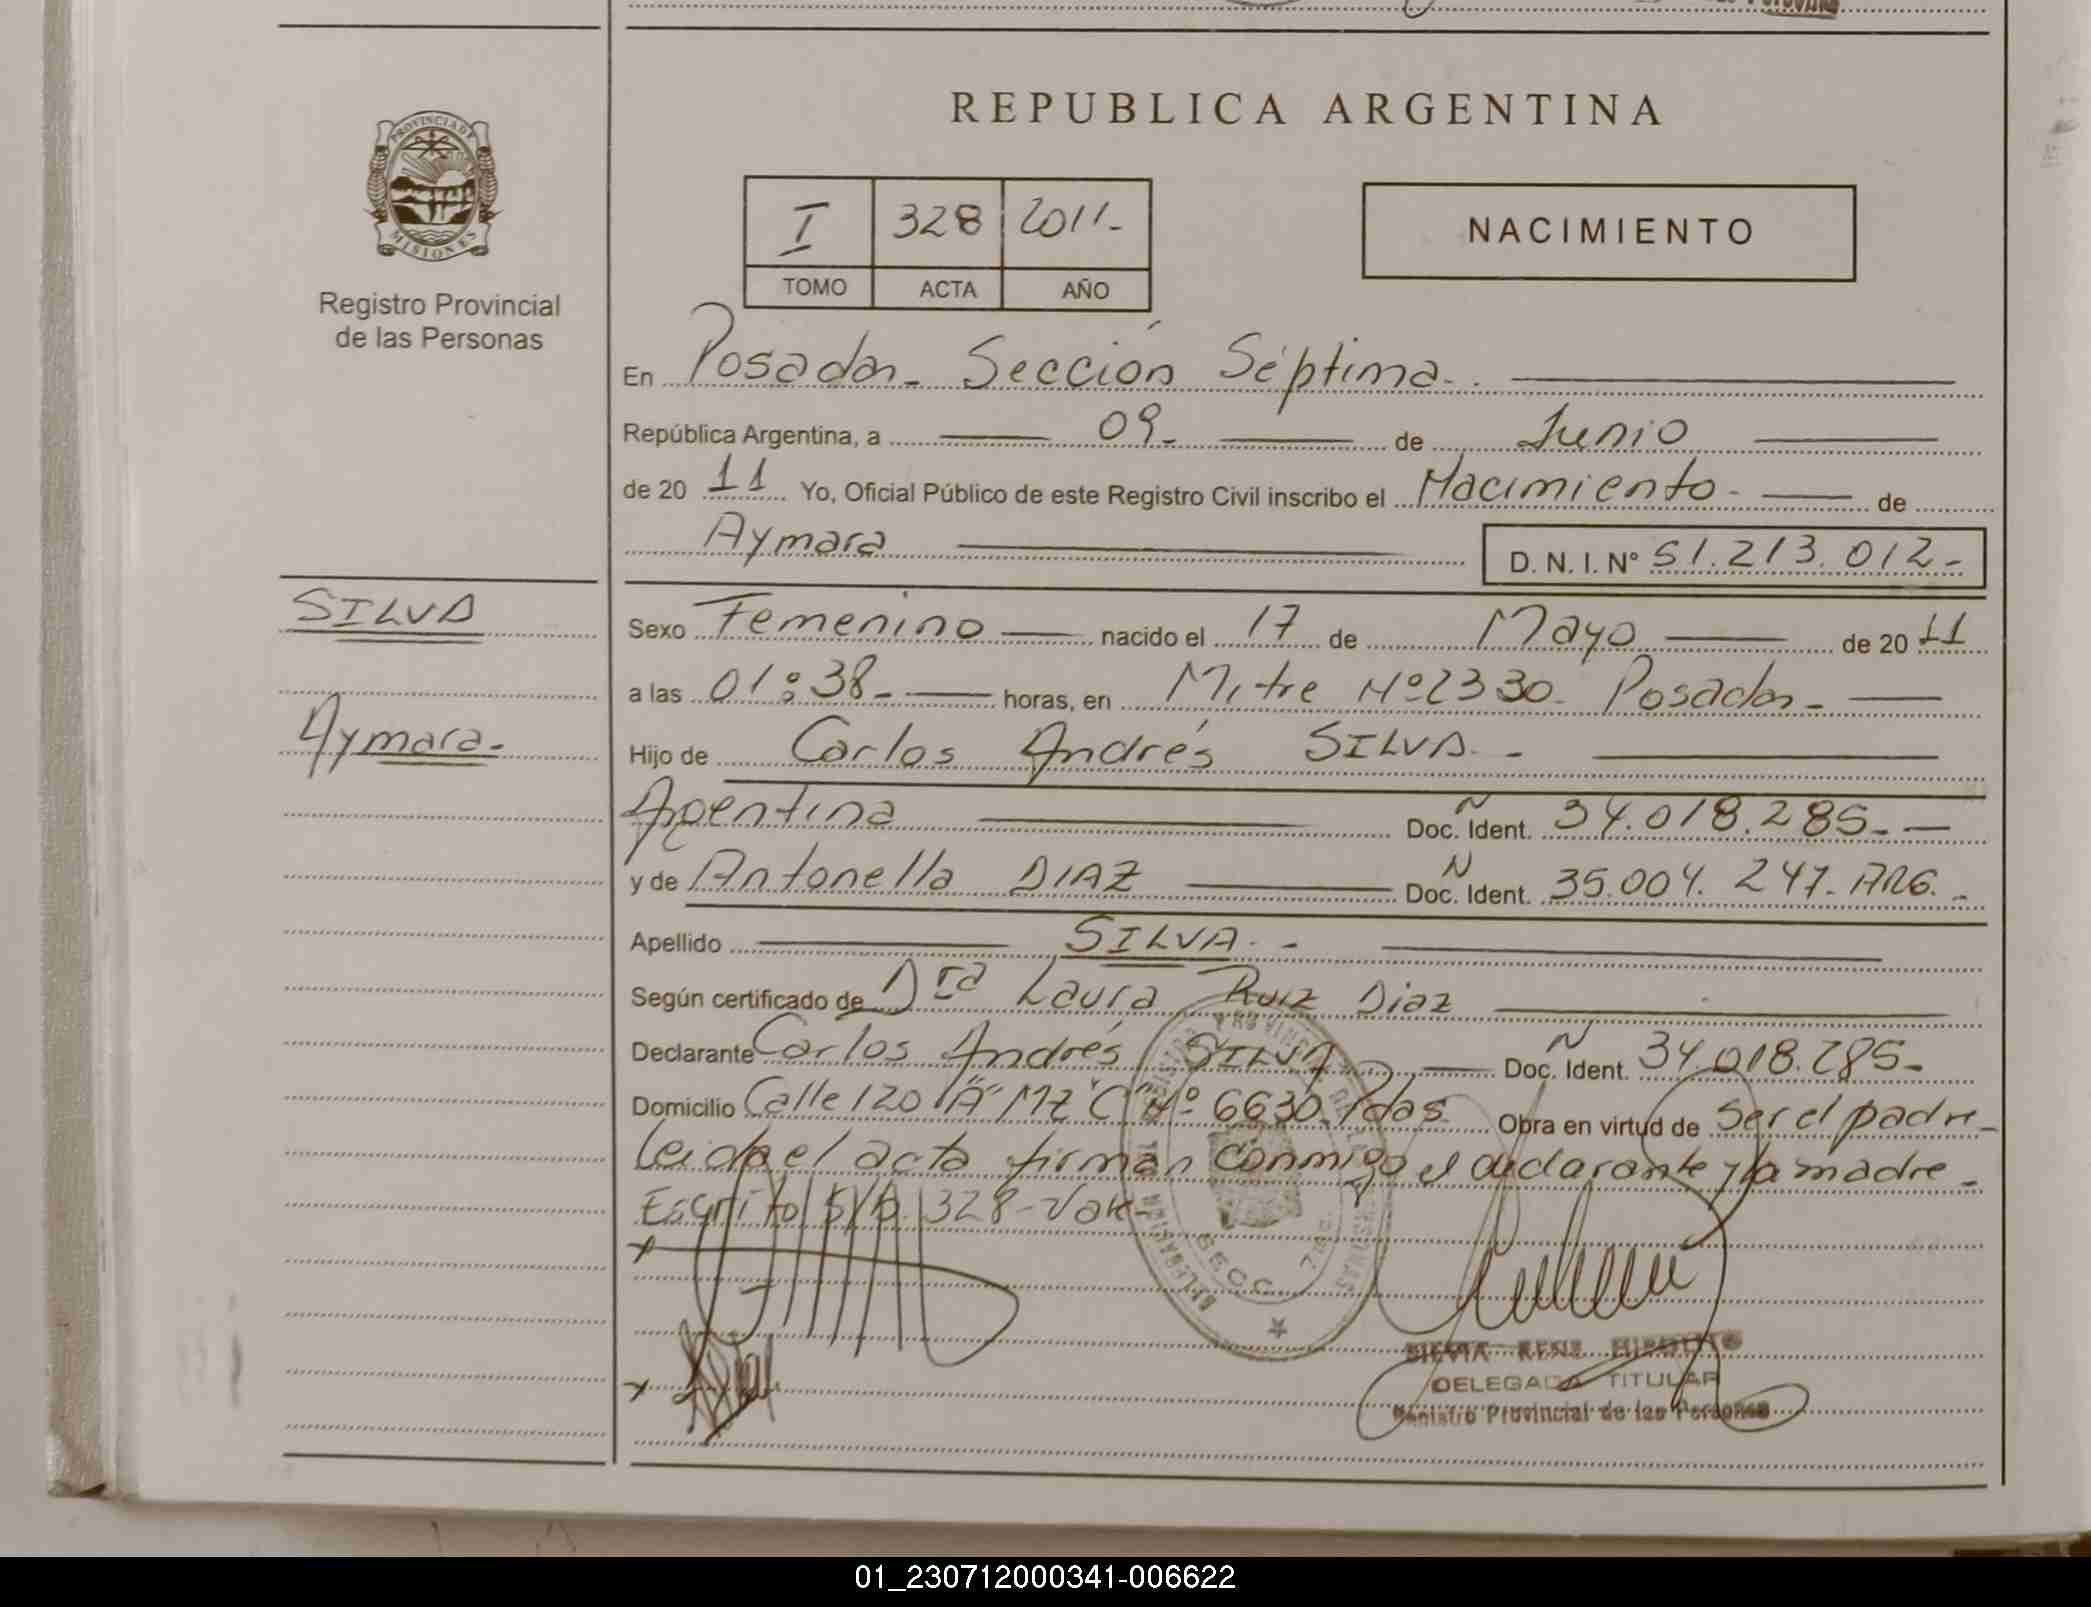 PROVINCIA DE
MISIONES
Registro Provincial
de las Personas
SILVA
Aymara-
REPUBLICA ARGENTINA
I 328 2011-
TOMO ACTA AÑO
NACIMIENTO
En Posadas- Sección Séptima-
República Argentina, a 09- de Junio
de 20 11 Yo, Oficial Público de este Registro Civil inscribo el Nacimiento- de
Aymara D. N. I. Nº 51.213.012-
Sexo Femenino nacido el 17 de Mayo de 20 11
a las 01:38- horas, en Mitre Nº2330- Posadas-
Hijo de Carlos Andrés SILVA-
Argentina Doc. Ident. Nº 34.018.285-
y de Antonella DIAZ Doc. Ident. Nº 35.004.247- ARG.-
Apellido SILVA.-
Según certificado de Dra Laura Ruiz Diaz
Declarante Carlos Andrés SILVA Doc. Ident. Nº 34.018.285-
Domicilio Calle 120 "A" Mz "C" Nº 6630 Pdas Obra en virtud de Ser el padre-
Leida el acta firman conmigo el declarante y la madre-
Escrito S/R 328-Vale-
SECC. 7ma.
DELEGADA TITULAR
Registro Provincial de las Personas
01_230712000341-006622